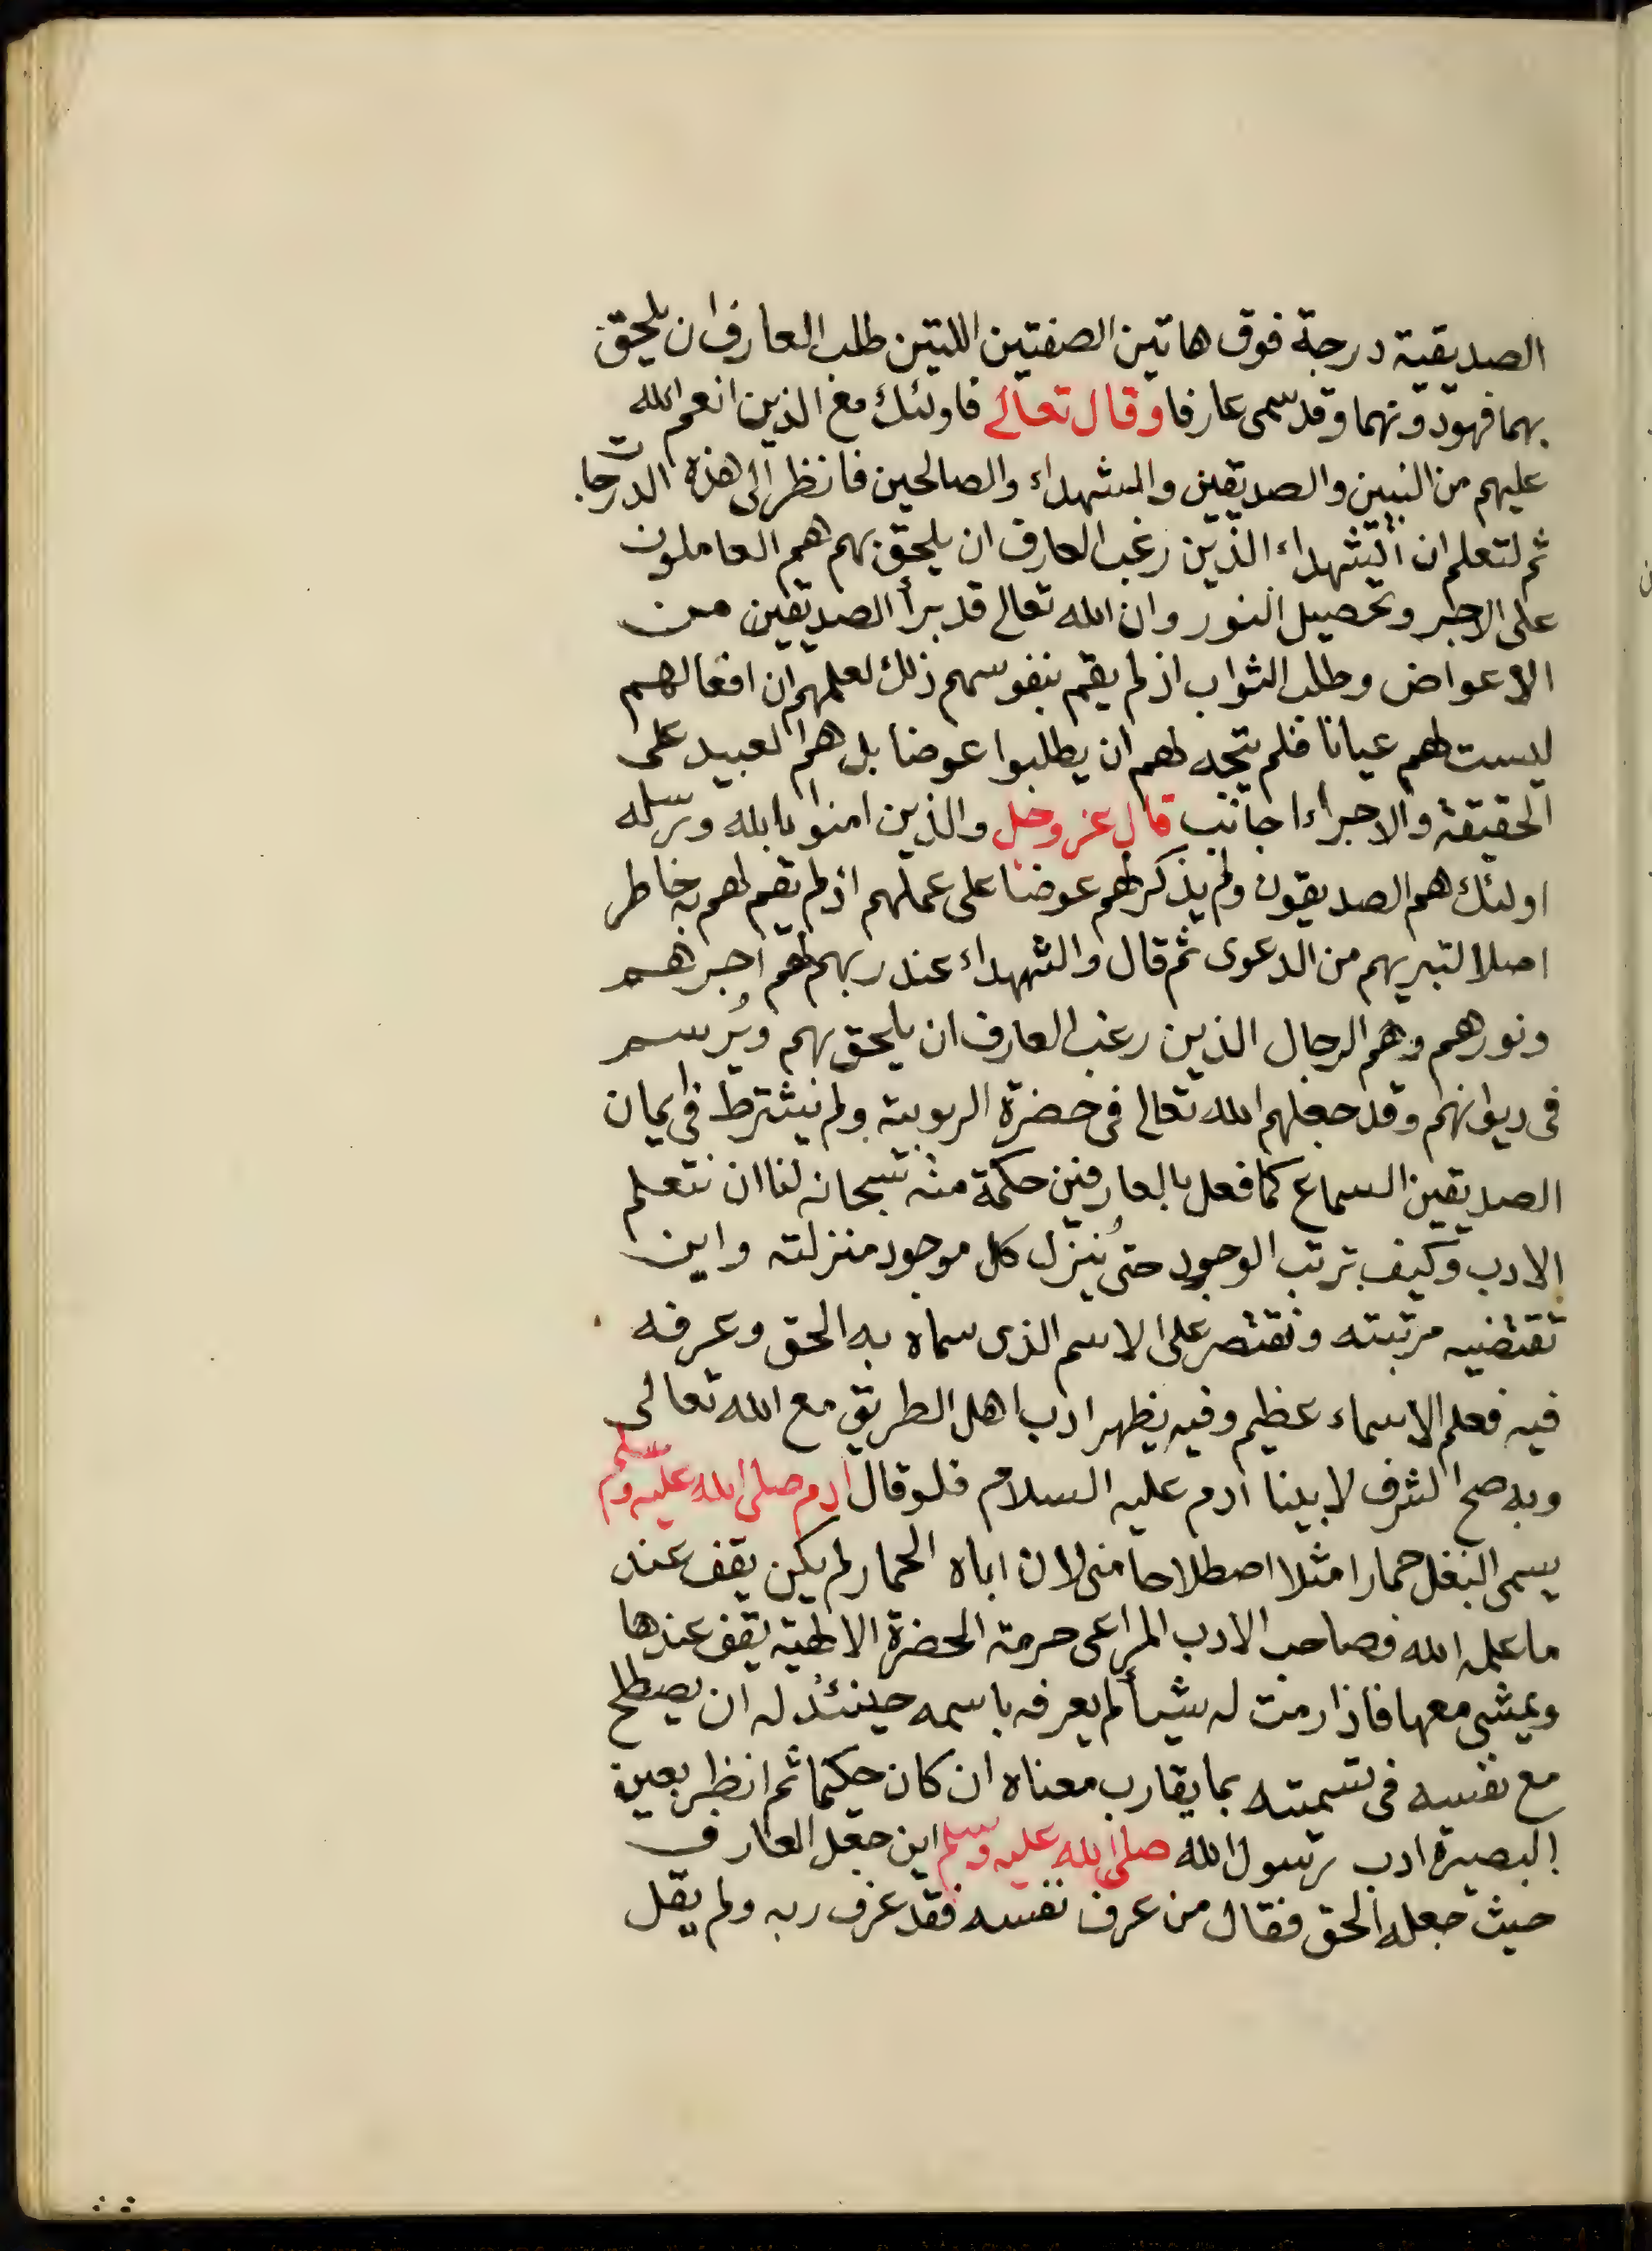 الصديقية درجة فوق هاتين الصفتين اللتين طلب العارف ان يلحق
بهما فهو دونهما وقد سمى عارفا وقال تعالى فاولئك مع الذين انعم الله
عليهم من النبين والصديقين والشهداء والصالحين فانظر الى هذه الدرجات
ثم لتعلم ان الشهداء الذين رغب العارف ان يلحق بهم هم العاملون
على الاجر وتحصيل النور وان الله تعالى قد برأ الصديقين من
الاعواض وطلب الثواب اذ لم يقم بنفوسهم ذلك لعلمهم ان افعالهم
ليست لهم عيانا فلم يتجه لهم ان يطلبوا عوضا بل هم العبيد على
الحقيقة والاجراء اجانب قال عز وجل والذين امنوا بالله ورسله
اولئك هم الصديقون ولم يذكر لهم عوضا على عملهم اذ لم يقم لهم به خاطر
اصلا لتبريهم من الدعوى ثم قال والشهداء عند ربهم لهم اجرهم
ونورهم وهم الرجال الذين رغب العارف ان يلحق بهم ويُرسم
فى ديوانهم وقد جعلهم الله تعالى فى حضرة الربوبية ولم يشترط فى ايمان
الصديقين السماع كما فعل بالعارفين حكمة منه سبحانه لنا ان نتعلم
الادب وكيف ترتب الوجود حتى نُنزل كل موجود منزلته واين
تقتضيه مرتبته ونقتصر على الاسم الذى سماه به الحق وعرفه
فيه فعلم الاسماء عظيم وفيه يظهر ادب اهل الطريق مع الله تعالى
وبه صح الشرف لابينا ادم عليه السلام فلو قال ادم صلى الله عليه وسلم
يسمى البغل حمارا مثلا اصطلاحا منى لان اباه الحمار لم يكن يقف عند
ما علمه الله فصاحب الادب المراعى حرمة الحضرة الالهية يقف عندها
ويمشى معها فاذا رمت له شيأ لم يعرفه باسمه حينئذ له ان يصطلح
مع نفسه فى تسميته بما يقارب معناه ان كان حكيما ثم انظر بعين
البصيرة ادب رسول الله صلى الله عليه وسلم اين جعل العارف
حيث جعله الحق فقال من عرف نفسه فقد عرف ربه ولم يقل